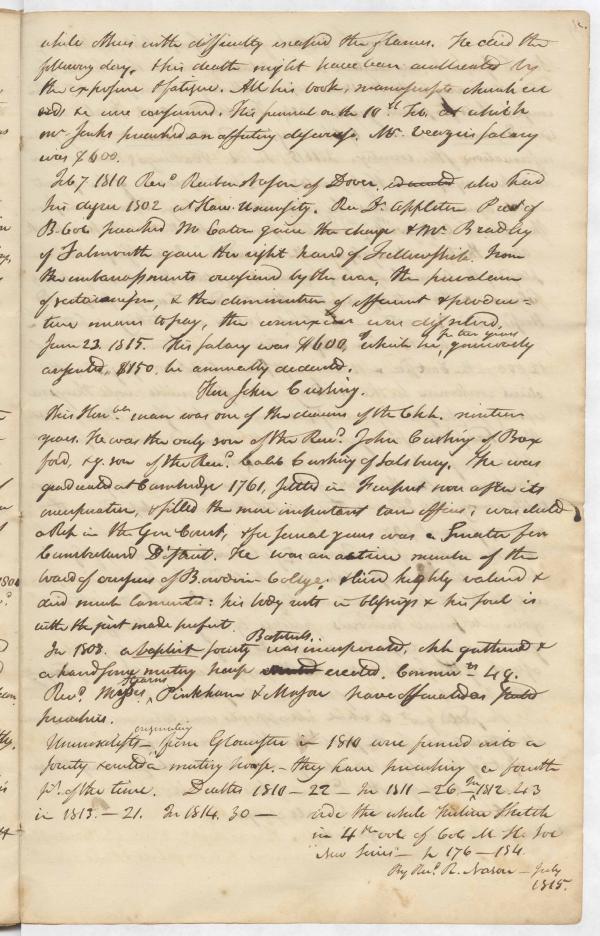 while others with difficulty escaped the flames. He died the
following day. & his death might have been accelerated by
the exposure & fatigue. All his books, manuscripts church rec
ords &c were consumed. His funeral on the 10th Feb. at which
Mr Jenks preached an affecting discourse. Mr. Veazie's salary
was $400.
Feb 7. 1810. Revd. Reuben Nason of Dover, who had
his degree 1802 at Harv. University. Rev Dr. Appleton Prest of
B. Col. preached Mr Eaton gave the charge & Mr. Bradley
of Falmouth gave the right hand of Fellowship. From
the embarrassments occasioned by the war, the prevalence
of sectarianism, & the diminution of efficient & produc=
tive means to pay, the connexion was dissolved,
June 23. 1815. His salary was $600, of which he, generously
assented, $150. be annually deducted.
Hon John Cushing.
This Honble. man was one of the deacons of the Chh. nineteen
years. He was the only son of the Revd. John Cushing of Box
ford, & g. son of the Revd. Caleb Cushing of Salsbury. He was
graduated at Cambridge 1761, settled in Freeport soon after its
incorporation, & filled the more important town offices, was elected
a Rep. in the Gen Court, & for several years was a Senator from
Cumberland District. He was an active member of the
board of overseers of Bowdoin College. & lived highly valued &
died much lamented: his body rests in blessings & his soul is
with the just made perfect.
Baptists.
In 1808. a baptist society was incorporated, chh. gathered &
a handsome meeting house erected. Commun-ts 49.
Revd. Messrs Stearns, Pinkham & Mason have officiated as
preachers.
Universalists - originating from Gloucester in 1810 were formed into a
society & erected a meeting house. - they have preaching a fourth
pt. of the time. Deaths 1810 - 22 - In 1811 - 26 - In 1812. 43
in 1813. - 21. In 1814. 30 - vide the whole Sketch
in 4th vol. of Col. M. H. Soc
New Series - p 176 - 184.
By Revd. R. Nason - July
1815.